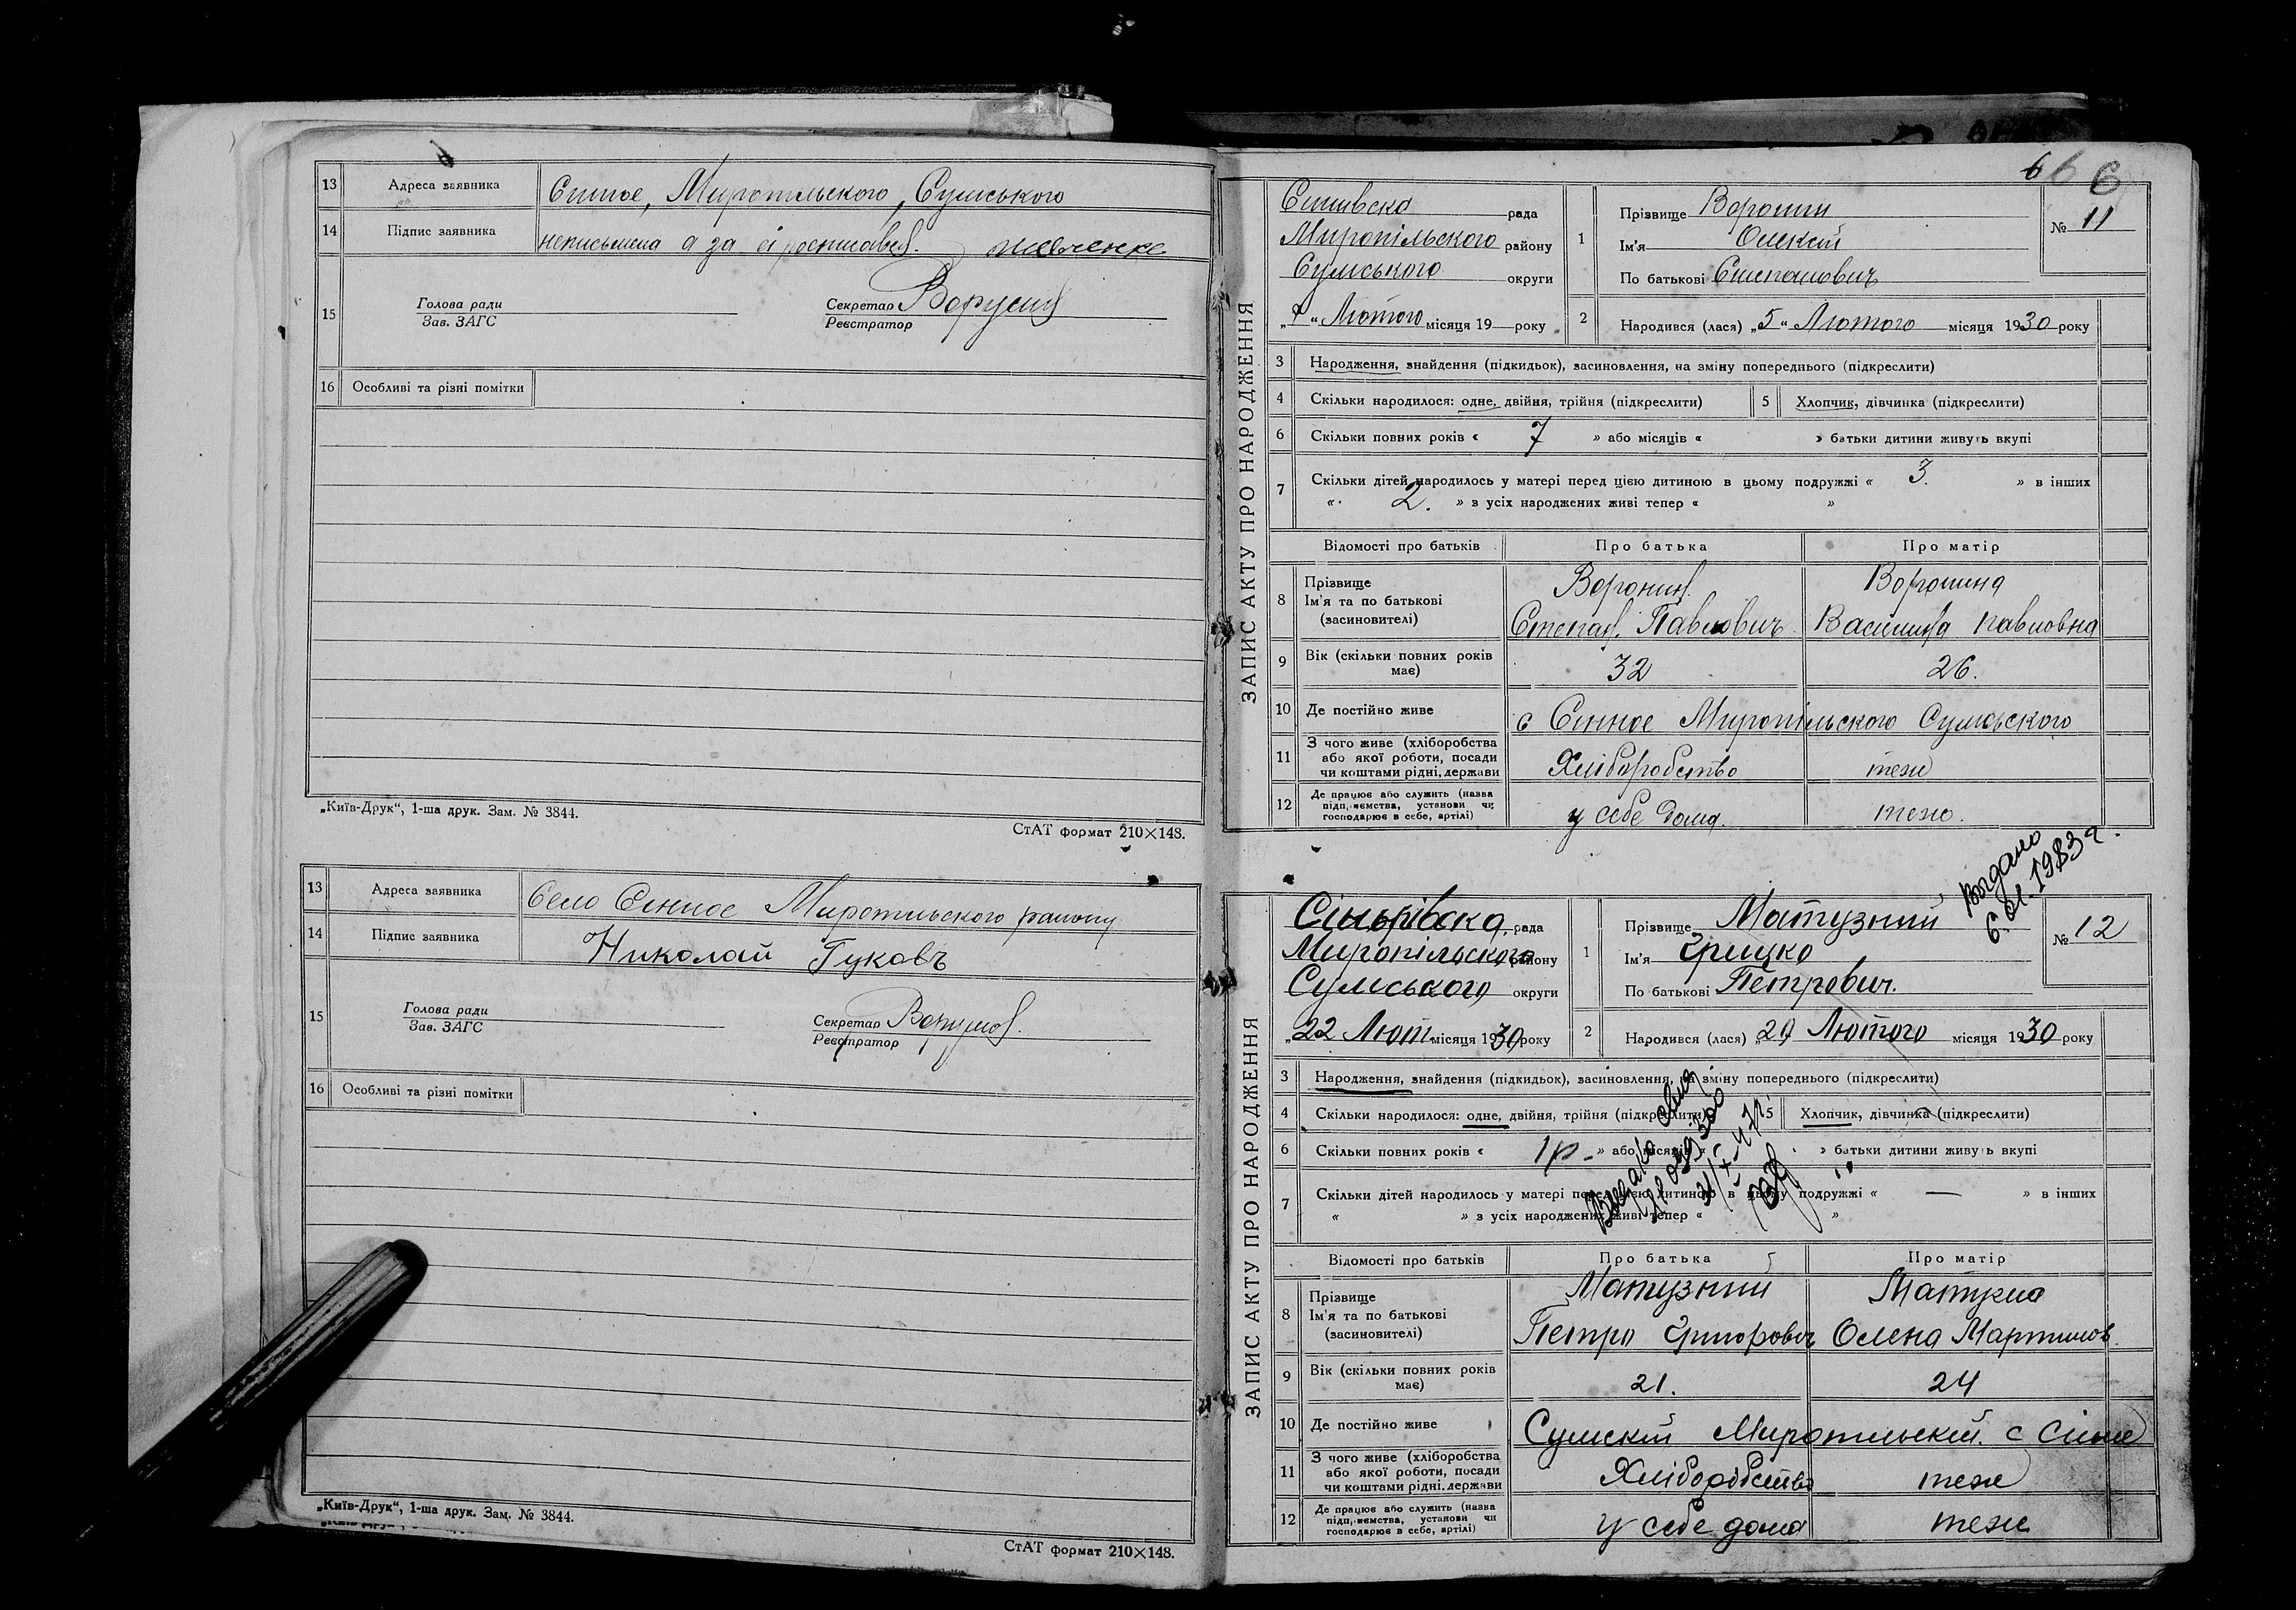 13 Адреса заявника Сінное, Миропильского, Сумського
14 Підпис заявника неписьмена а за еі росписавсь.
15 Голова ради Секретар
Зав. ЗАГС Реєстратор
16 Особливі та різні помітки
„Київ-Друк“, 1-ша друк. Зам. № 3844.
СтАТ формат 210×148.
13 Адреса заявника Село Сінное Миропильского району
14 Підпис заявника Николай Гуковъ
15 Голова ради Секретар
Зав. ЗАГС Реєстратор
16 Особливі та різні помітки
„Київ-Друк“, 1-ша друк. Зам. № 3844.
СтАТ формат 210×148.
6 6 6
ЗАПИС АКТУ ПРО НАРОДЖЕННЯ
рада
Миропільского району
Сумського округи
„7“ Лютого місяця 19 року
1 Прізвище Воронин
Ім'я Олексій
По батькові Степановичъ
№ 11
2 Народився (лася) „5“ Лютого місяця 1930 року
3 Народження, знайдення (підкидьок), засиновлення, на зміну попереднього (підкреслити)
4 Скільки народилося: одне, двійня, трійня (підкреслити) 5 Хлопчик, дівчинка (підкреслити)
6 Скільки повних років « 7 » або місяців « » батьки дитини живуть вкупі
7 Скільки дітей народилось у матері перед цією дитиною в цьому подружжі « 3. » в інших
« 2. » з усіх народжених живі тепер « »
Відомості про батьків Про батька Про матір
8 Прізвище Воронин Воронина
Ім'я та по батькові
(засиновителі) Степан. Павловичъ Василина Павловна
9 Вік (скільки повних років має) 32 26.
10 Де постійно живе с Сінное Миропільского Сумського
11 З чого живе (хліборобства або якої роботи, посади чи коштами рідні, держави Хліборобство теж
12 Де працює або служить (назва підприємства, установи чи господарює в себе, артілі) у себе дома. теж.
Видано
1983 г.
ЗАПИС АКТУ ПРО НАРОДЖЕННЯ
рада
Миропільского району
Сумського округи
„22 Лют. місяця 1930 року
1 Прізвище Матузний
Ім'я Грицко
По батькові Петрович.
№ 12
2 Народився (лася) „20 Лютого місяця 1930 року
3 Народження, знайдення (підкидьок), засиновлення, на зміну попереднього (підкреслити)
4 Скільки народилося: одне, двійня, трійня (підкреслити) 5 Хлопчик, дівчинка (підкреслити)
6 Скільки повних років « 1р. » або місяців « » батьки дитини живуть вкупі
7 Скільки дітей народилось у матері перед цією дитиною в цьому подружжі « — » в інших
« » з усіх народжених живі тепер « »
Відомості про батьків Про батька Про матір
8 Прізвище Матузний
Ім'я та по батькові
(засиновителі) Петро Григорович Олена Мартинов.
9 Вік (скільки повних років має) 21. 24
10 Де постійно живе Сумскій Миропильскій. с Сінне
11 З чого живе (хліборобства або якої роботи, посади чи коштами рідні, держави Хліборобство теж
12 Де працює або служить (назва підприємства, установи чи господарює в себе, артілі) у себе дома теж